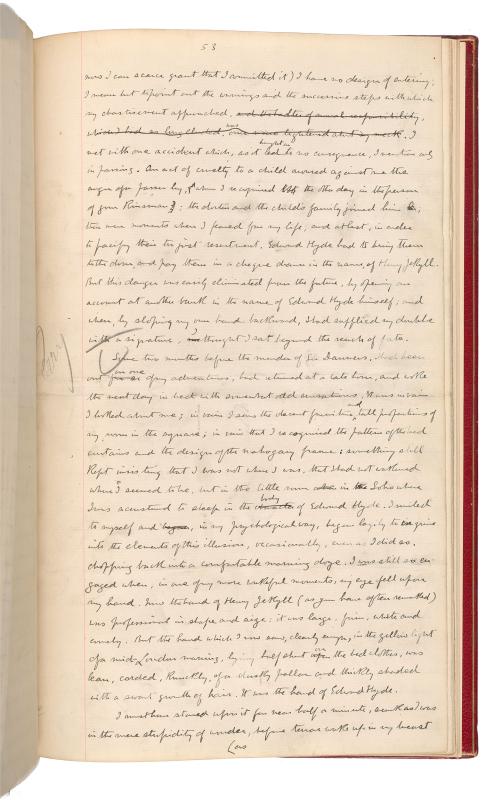 53
now I can scarce grant that I committed it) I have no design of entering;
I mean but to point out the warnings and the successive steps with which
my chastisement approached. and the ladder of moral responsibility,
which I had so long eluded, was once more tightened about my neck. I
met with one accident which, as it brought on led to no consequence, I mention only
in passing. An act of cruelty to a child aroused against me the
anger of a passer by, whom I recognised the other day in the person
of your kinsman; the doctor and the child's family joined him;
there were moments when I feared for my life; and at last, in order
to pacify their too just resentment, Edward Hyde had to bring them
to the door, and pay them in a cheque drawn in the name of Henry Jekyll.
But this danger was easily eliminated from the future, by opening an
account at another bank in the name of Edward Hyde himself; and
when, by sloping my own hand backward, I had supplied my double
with a signature, I thought I sat beyond the reach of fate.
Some two months before the murder of Sir Danvers, I had been
out for one of my adventures, had returned at a late hour, and woke
the next day in bed with somewhat odd sensations. It was in vain
I looked about me; in vain I saw the decent furniture and tall proportions of
my room in the square; in vain that I recognised the pattern of the bed
curtains and the design of the mahogany frame; something still
kept insisting that I was not where I was, that I had not wakened
where I seemed to be, but in the little room in Soho where
I was accustomed to sleep in the body character of Edward Hyde. I smiled
to myself and began, in my psychological way, began lazily to enquire
into the elements of this illusion, occasionally, even as I did so,
dropping back into a comfortable morning doze. I was still so en-
gaged when, in one of my more wakeful moments, my eye fell upon
my hand. Now the hand of Henry Jekyll (as you have often remarked)
was professional in shape and size; it was large, firm, white and
comely. But the hand which I now saw, clearly enough, in the yellow light
of a mid-London morning, lying half shut on the bed clothes, was
lean, corded, knuckly, of a dusky pallor and thickly shaded
with a swart growth of hair. It was the hand of Edward Hyde.
I must have stared upon it for near half a minute, sunk as I was
in the mere stupidity of wonder, before terror woke up in my breast
(as